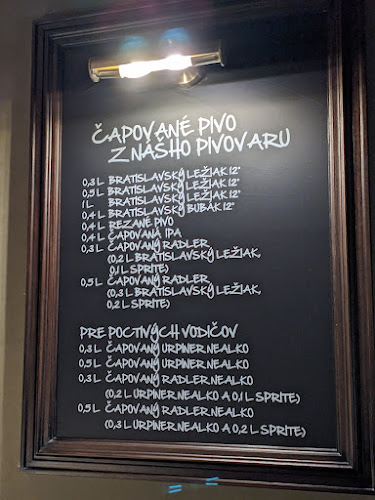 ČAPOVANÉ PIVO
Z NÁŠHO PIVOVARU
0,3 L BRATISLAVSKÝ LEŽIAK 12°
0,5 L BRATISLAVSKÝ LEŽIAK 12°
1 L BRATISLAVSKÝ LEŽIAK 12°
0,4 L BRATISLAVSKÝ BUBÁK 12°
0,4 L REZANÉ PIVO
0,4 L ČAPOVANÁ IPA
0,3 L ČAPOVANÝ RADLER
(0,2 L BRATISLAVSKÝ LEŽIAK,
0,1 L SPRITE)
0,5 L ČAPOVANÝ RADLER
(0,3 L BRATISLAVSKÝ LEŽIAK,
0,2 L SPRITE)
PRE POCTIVÝCH VODIČOV
0,3 L ČAPOVANÝ URPINER NEALKO
0,5 L ČAPOVANÝ URPINER NEALKO
0,3 L ČAPOVANÝ RADLER NEALKO
(0,2 L URPINER NEALKO A 0,1 L SPRITE)
0,5 L ČAPOVANÝ RADLER NEALKO
(0,3 L URPINER NEALKO A 0,2 L SPRITE)